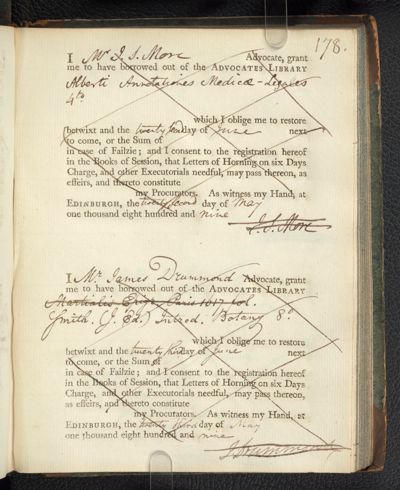 178.
I Mr J. S. More Advocate, grant
me to have borrowed out of the ADVOCATES LIBRARY
Alberti Annotationes Medicæ-Legales
4to
which I oblige me to restore
betwixt and the twenty day of June next
to come, or the Sum of
in case of Failzie; and I consent to the registration hereof
in the Books of Session, that Letters of Horning on six Days
Charge, and other Executorials needful, may pass thereon, as
effeirs, and thereto constitute
my Procurators. As witness my Hand, at
EDINBURGH, the twenty second day of May
one thousand eight hundred and nine
J. S. More
I Mr. James Drummond Advocate, grant
me to have borrowed out of the ADVOCATES LIBRARY
Martialis Epig. Paris 1617 fol.
Smith. (J. Ed.) Introd. Botany 8o
which I oblige me to restore
betwixt and the twenty day of June next
to come, or the Sum of
in case of Failzie; and I consent to the registration hereof
in the Books of Session, that Letters of Horning on six Days
Charge, and other Executorials needful, may pass thereon,
as effeirs, and thereto constitute
my Procurators. As witness my Hand, at
EDINBURGH, the twenty day of May
one thousand eight hundred and nine
J Drummond